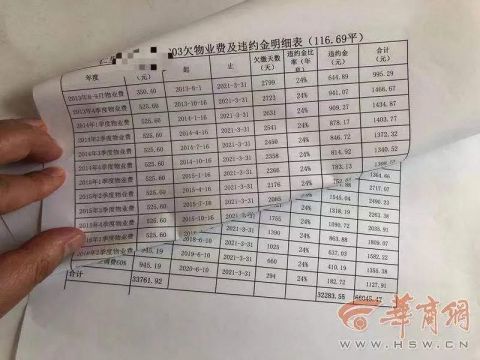 03欠物业费及违约金明细表(116.69平)
年度 (元) 起 止 欠缴天数(天) 违约金比率(年息) 违约金(元) 合计(元)
2013年8-9月物业费 350.40 2013-8-1 2021-3-31 2799 24% 644.89 995.29
2013年4季度物业费 525.60 2013-10-16 2021-3-31 24% 941.07 1466.67
2014年1季度物业费 525.60 2021-3-31 2631 24% 909.27 1434.87
2014年2季度物业费 525.60 2021-3-31 2541 24% 878.17 1403.77
2014年3季度物业费 525.60 2014-7-16 2021-3-31 2450 24% 846.72 1372.32
2014年4季度物业费 525.60 2014-10-16 2021-3-31 2358 24% 814.92 1340.52
2015年1季度物业费 525.60 2021-3-31 2266 24% 783.13
2015年2季度物业费 525.60 2021-3-31 2176 24% 1364.66
2015年3季度物业费 525.60 2015-7-16 2021-3-31 24% 2717.07
2015年4季度物业费 525.60 2015-10-16 2021-3-31 24% 1545.04 2490.23
季度物业费 525.60 2021-3-31 1755 24% 1318.19 2263.38
季度物业费 2021-3-31 1390 24% 1090.72 2035.91
2018-6-10 2021-3-31 1025 24% 863.88 1809.07
945.19 2019-6-10 2021-3-31 660 24% 637.03 1582.22
945.19 2020-6-10 2021-3-31 294 24% 410.19 1355.38
合计 33761.92 24% 182.72 1127.91
32283.55 66045.47
华商网
WWW.HSW.CN